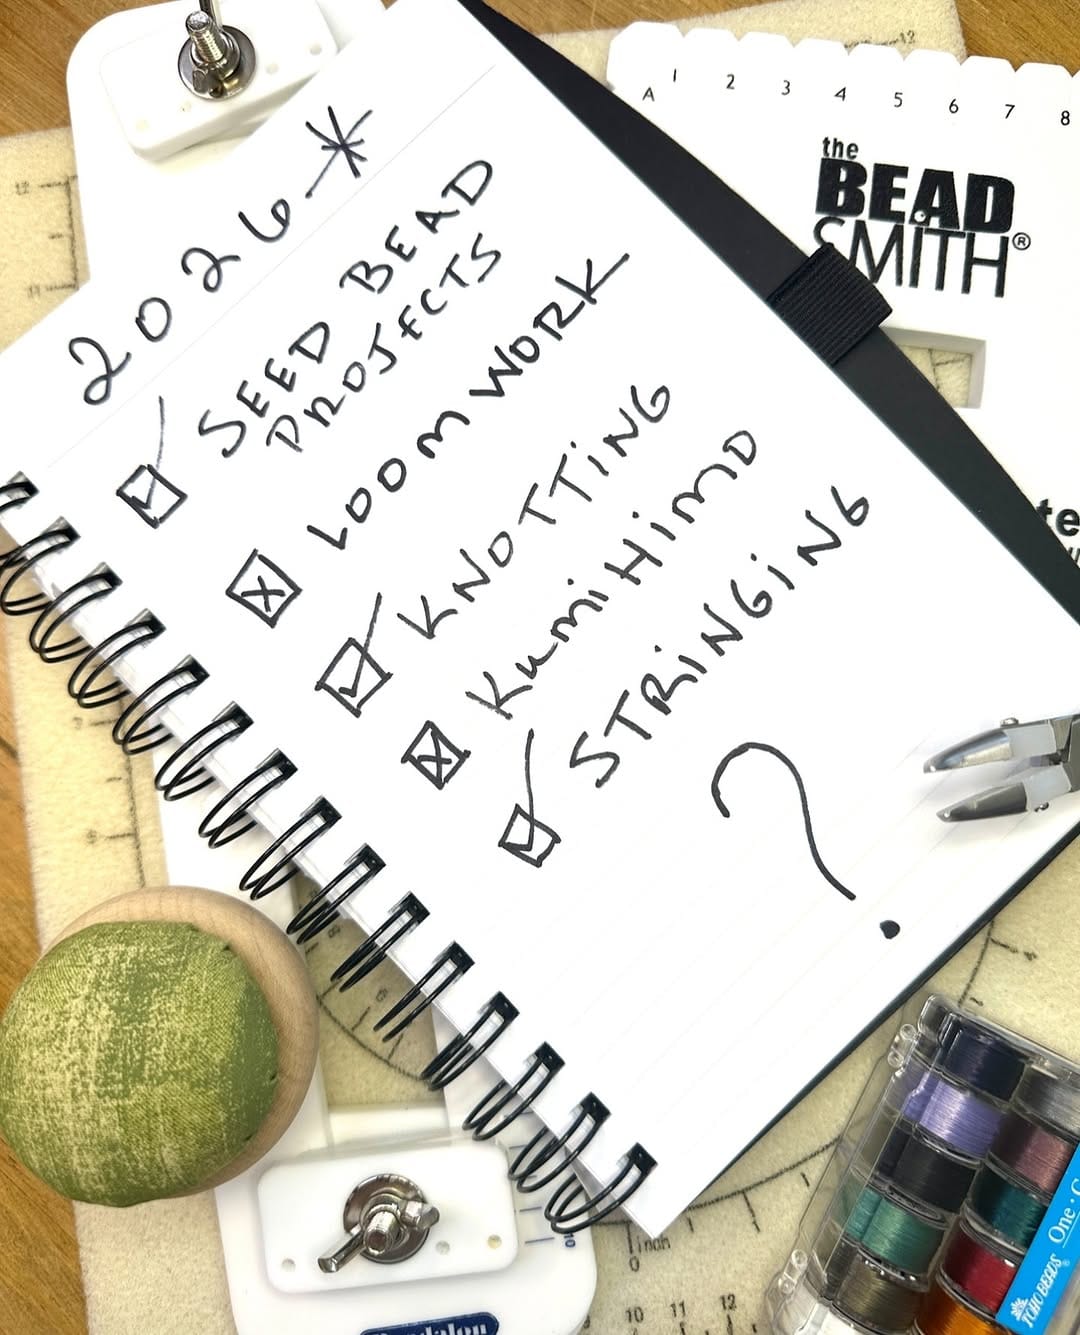 2026-*
SEED BEAD
PROJECTS
LOOM WORK
KNOTTING
KumiHimo
STRINGING
?
A 1 2 3 4 5 6 7 8
the
BEAD
SMITH®
12
11
9
1inch
0
10
10 11 12
TOHO BEADS® One